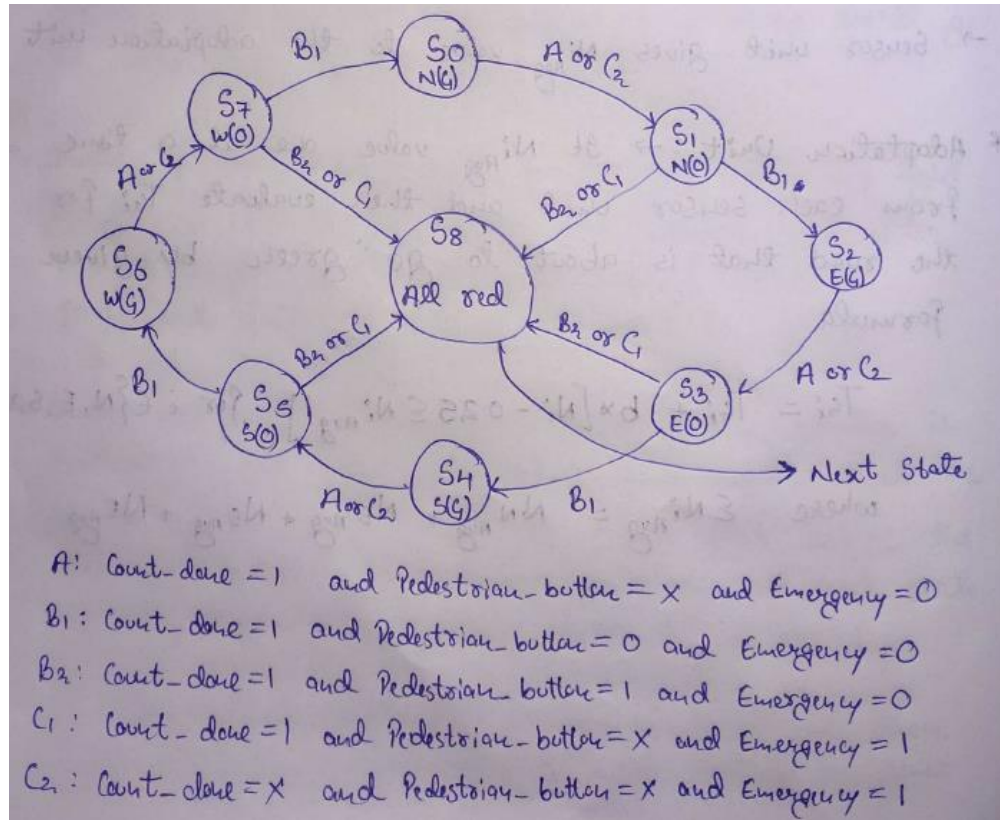 S0
N(G)
B1
A or C2
S7
W(O)
S1
N(O)
A or C2
B2 or C1
B2 or C1
B1
S8
All red
S2
E(G)
S6
W(G)
B2 or C1
B2 or C1
A or C2
S3
E(O)
B1
S5
S(O)
S4
S(G)
A or C2
B1
Next State
A: Count_done = 1 and Pedestrian_button = X and Emergency = 0
B1: Count_done = 1 and Pedestrian_button = 0 and Emergency = 0
B2: Count_done = 1 and Pedestrian_button = 1 and Emergency = 0
C1: Count_done = 1 and Pedestrian_button = X and Emergency = 1
C2: Count_done = X and Pedestrian_button = X and Emergency = 1